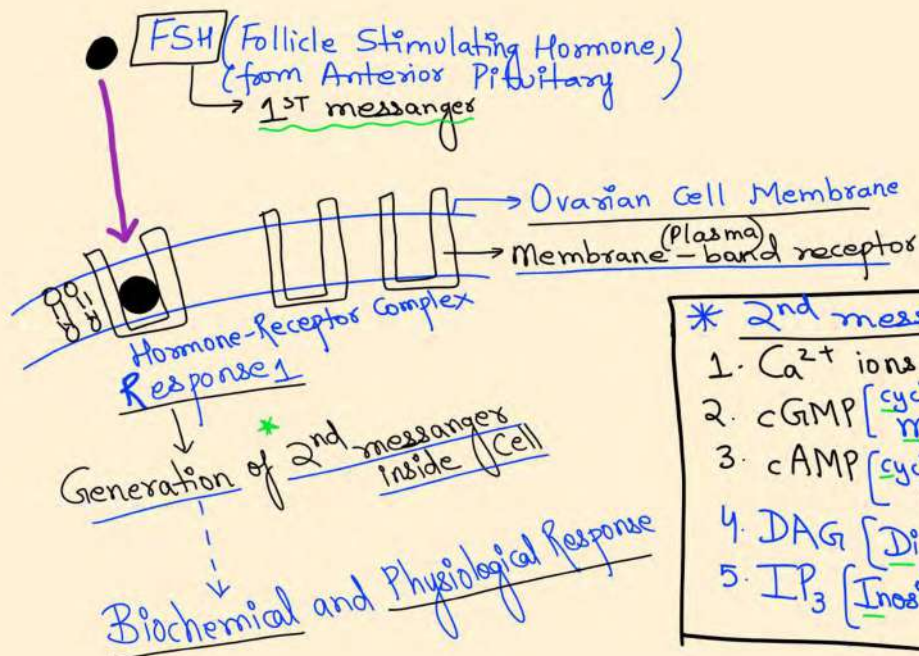 FSH (Follicle Stimulating Hormone,)
(from Anterior Pituitary)
1ST messanger
Ovarian Cell Membrane
(Plasma)
Membrane-band receptor
Hormone-Receptor Complex
Response 1
Generation of 2nd messanger
inside Cell
Biochemical and Physiological Response
* 2nd mess
1. Ca2+ ions
2. cGMP [cyc
m
3. cAMP [cyc
4. DAG [Di
5. IP3 [Inosi